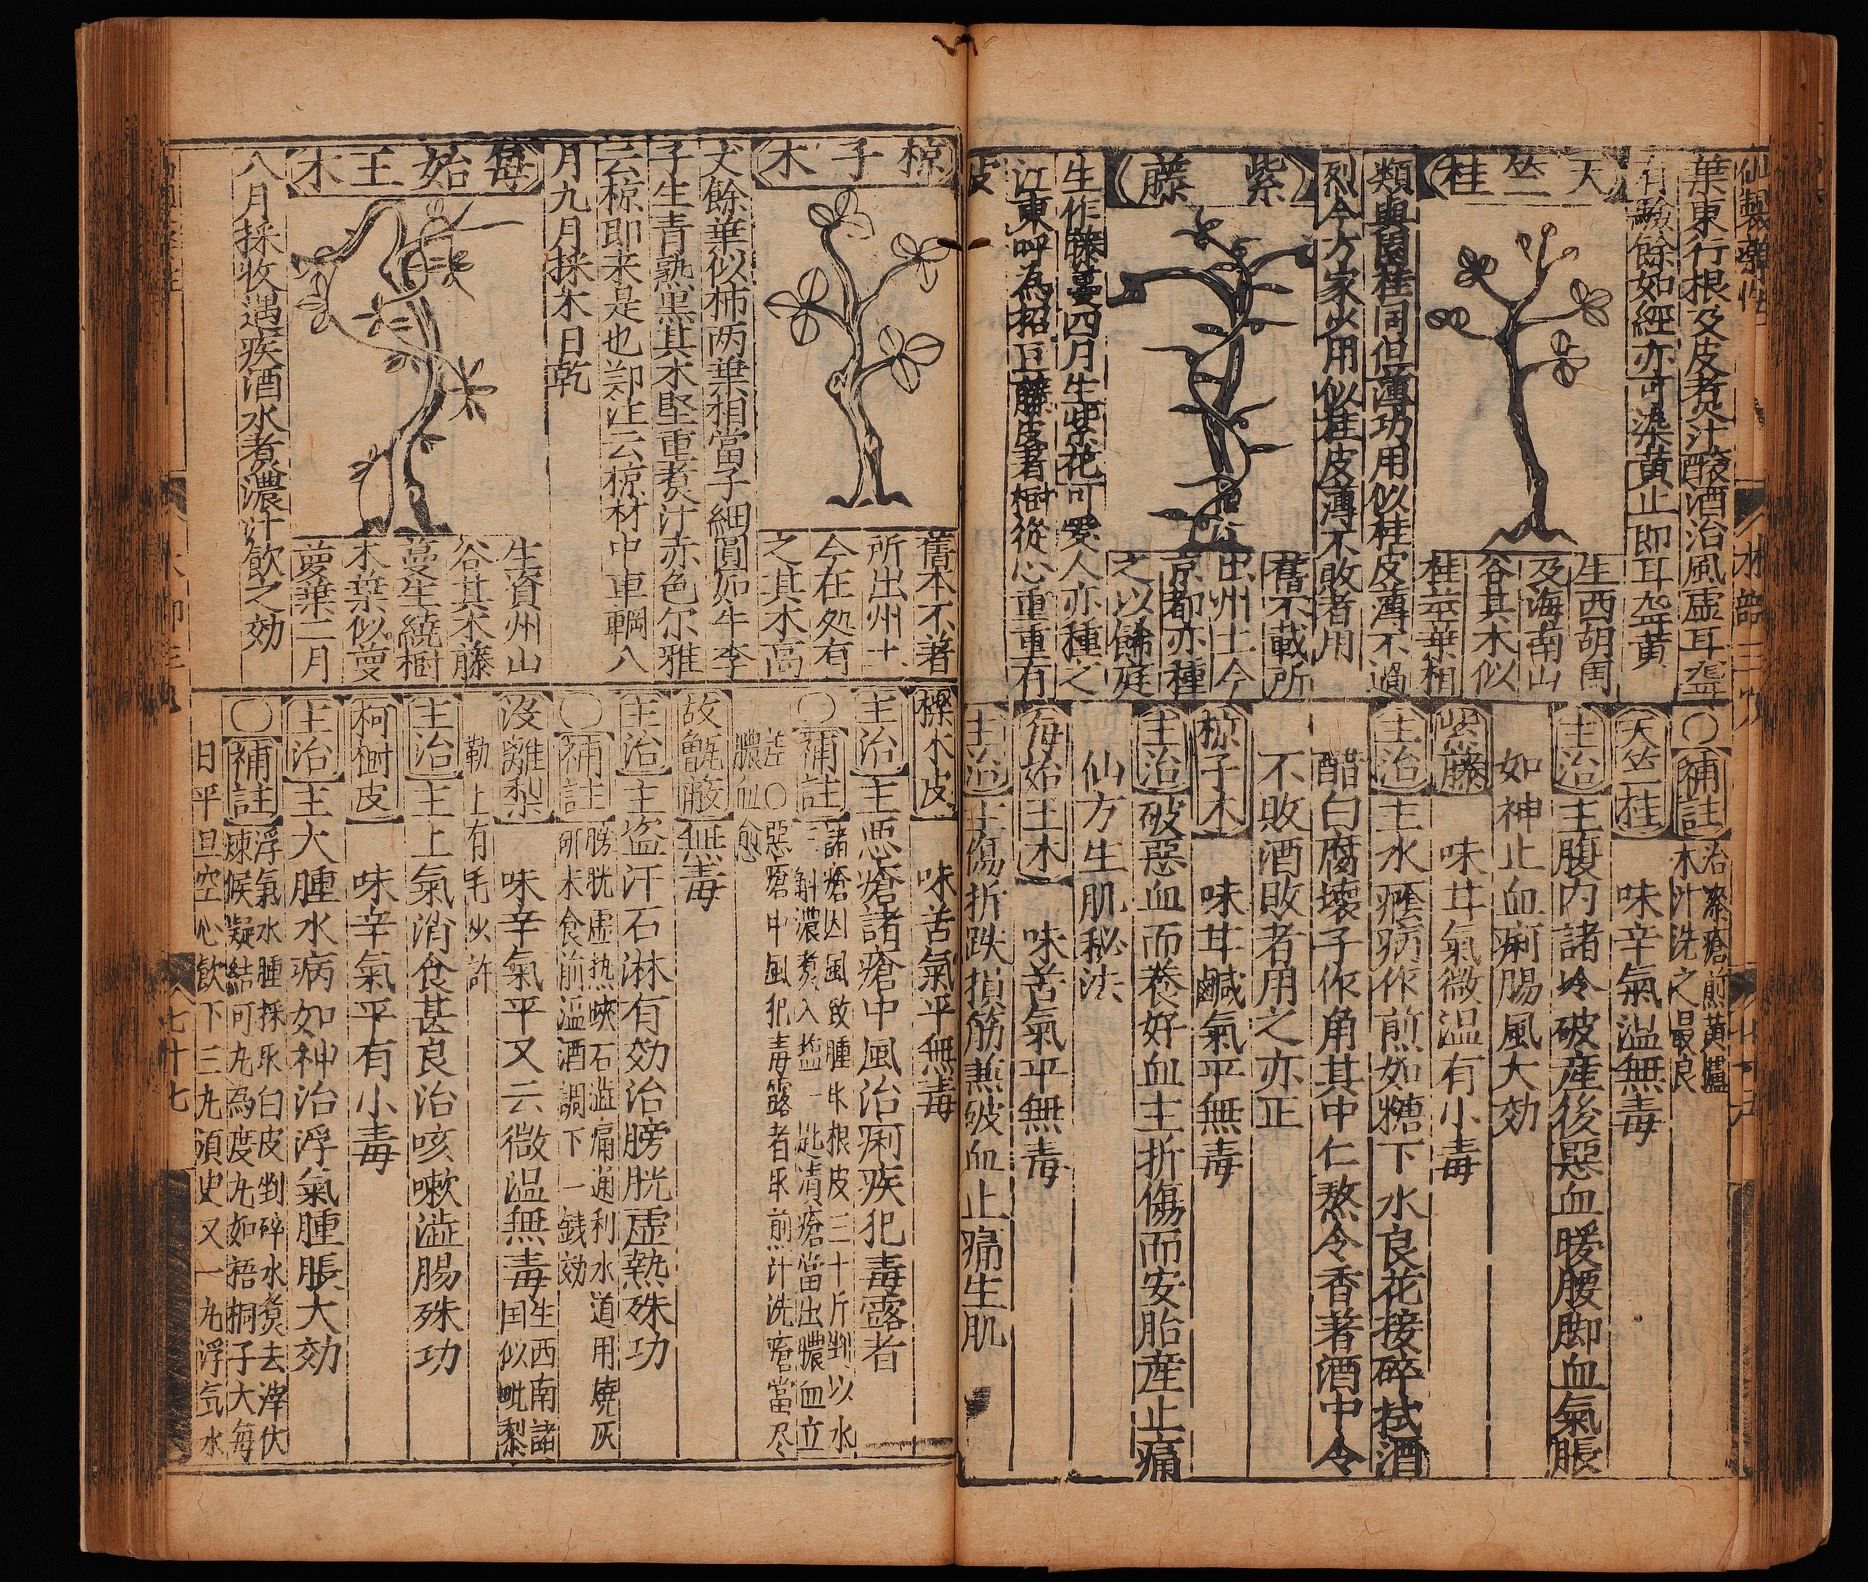 葉東行根及皮煮汁釀酒治風虛耳聾
有驗餘如經亦可染黃止即耳聾黃
天竺桂
生西胡國
及海南山
谷其木似
桂莖葉相
類與閩桂同但薄功用似桂皮薄不過
烈今方家少用似桂皮薄不敗者用
紫藤
舊不載所
出州土今
京都亦種
之以餙庭
生作藤蔓四月生紫花可愛人亦種之
江東呼為招豆藤皮著樹從心重重有
皮
○補註
治漆瘡煎黃櫨
木汁洗之最良
天竺桂 味辛氣溫無毒
主治主腹內諸冷破產後惡血暖腰脚血氣脹
如神止血痢腸風大効
紫藤 味甘氣微溫有小毒
主治主水癊病作煎如糖下水良花挼碎拭酒
醋白腐壞子作角其中仁熬令香著酒中令
不敗酒敗者用之亦正
椋子木 味甘鹹氣平無毒
主治破惡血而養好血主折傷而安胎產止痛
仙方生肌秘法
每始王木 味苦氣平無毒
主治主傷折跌損筋無破血止痛生肌
椋子木
舊本不著
所出州土
今在処有
之其木高
丈餘葉似柿两葉相當子細圓如牛李
子生青熟黑其木堅重煮汁赤色尔雅
云椋即来是也郑注云椋材中車輞八
月九月採木日乾
每始王木
生資州山
谷其木藤
蔓生繞樹
木葉似蔞
蔞葉二月
八月採收遇疾酒水煮濃汁飲之効
櫟木皮 味苦氣平無毒
主治主惡瘡諸瘡中風治痢疾犯毒露者
○補註
諸瘡因風致腫朱根皮三十斤剉以水
三斛濃煮入塩一匙漬瘡當出膿血立
差○惡瘡中風犯毒露者取煎汁洗瘡當尽
膿血愈
故甑蔽 無毒
主治主盜汗石淋有効治膀胱虛熱殊功
○補註
膀胱虛热峽石澁痛通利水道用燒灰
研末食前溫酒調下一錢効
沒離梨 味辛氣平又云微溫無毒
生西南諸
国似毗黎
勒上有毛少許
主治主上氣消食甚良治咳嗽澁腸殊功
柯樹皮 味辛氣平有小毒
主治主大腫水病如神治浮氣腫脹大効
○補註
浮氣水腫採取白皮剉碎水煮去滓伏
煉候凝結可丸為度丸如梧桐子大每
日平旦空心飲下三丸須史又一丸浮気水
七十七